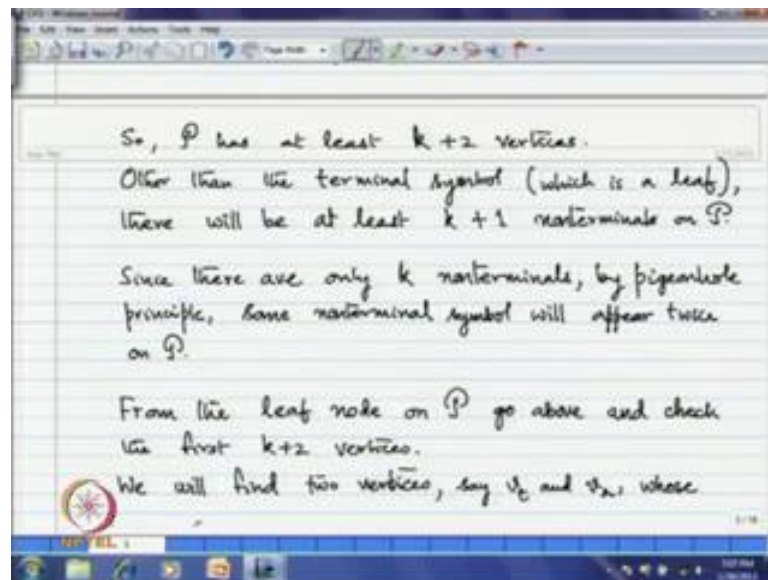 So, P has at least k+2 vertices.
Other than the terminal symbol (which is a leaf),
there will be at least k+1 nonterminals on P.
Since there are only k nonterminals, by pigeonhole
principle, some nonterminal symbol will appear twice
on P.
From the leaf node on P go above and check
the first k+2 vertices.
We will find two vertices, say v_t and v_s, whose
NPTEL